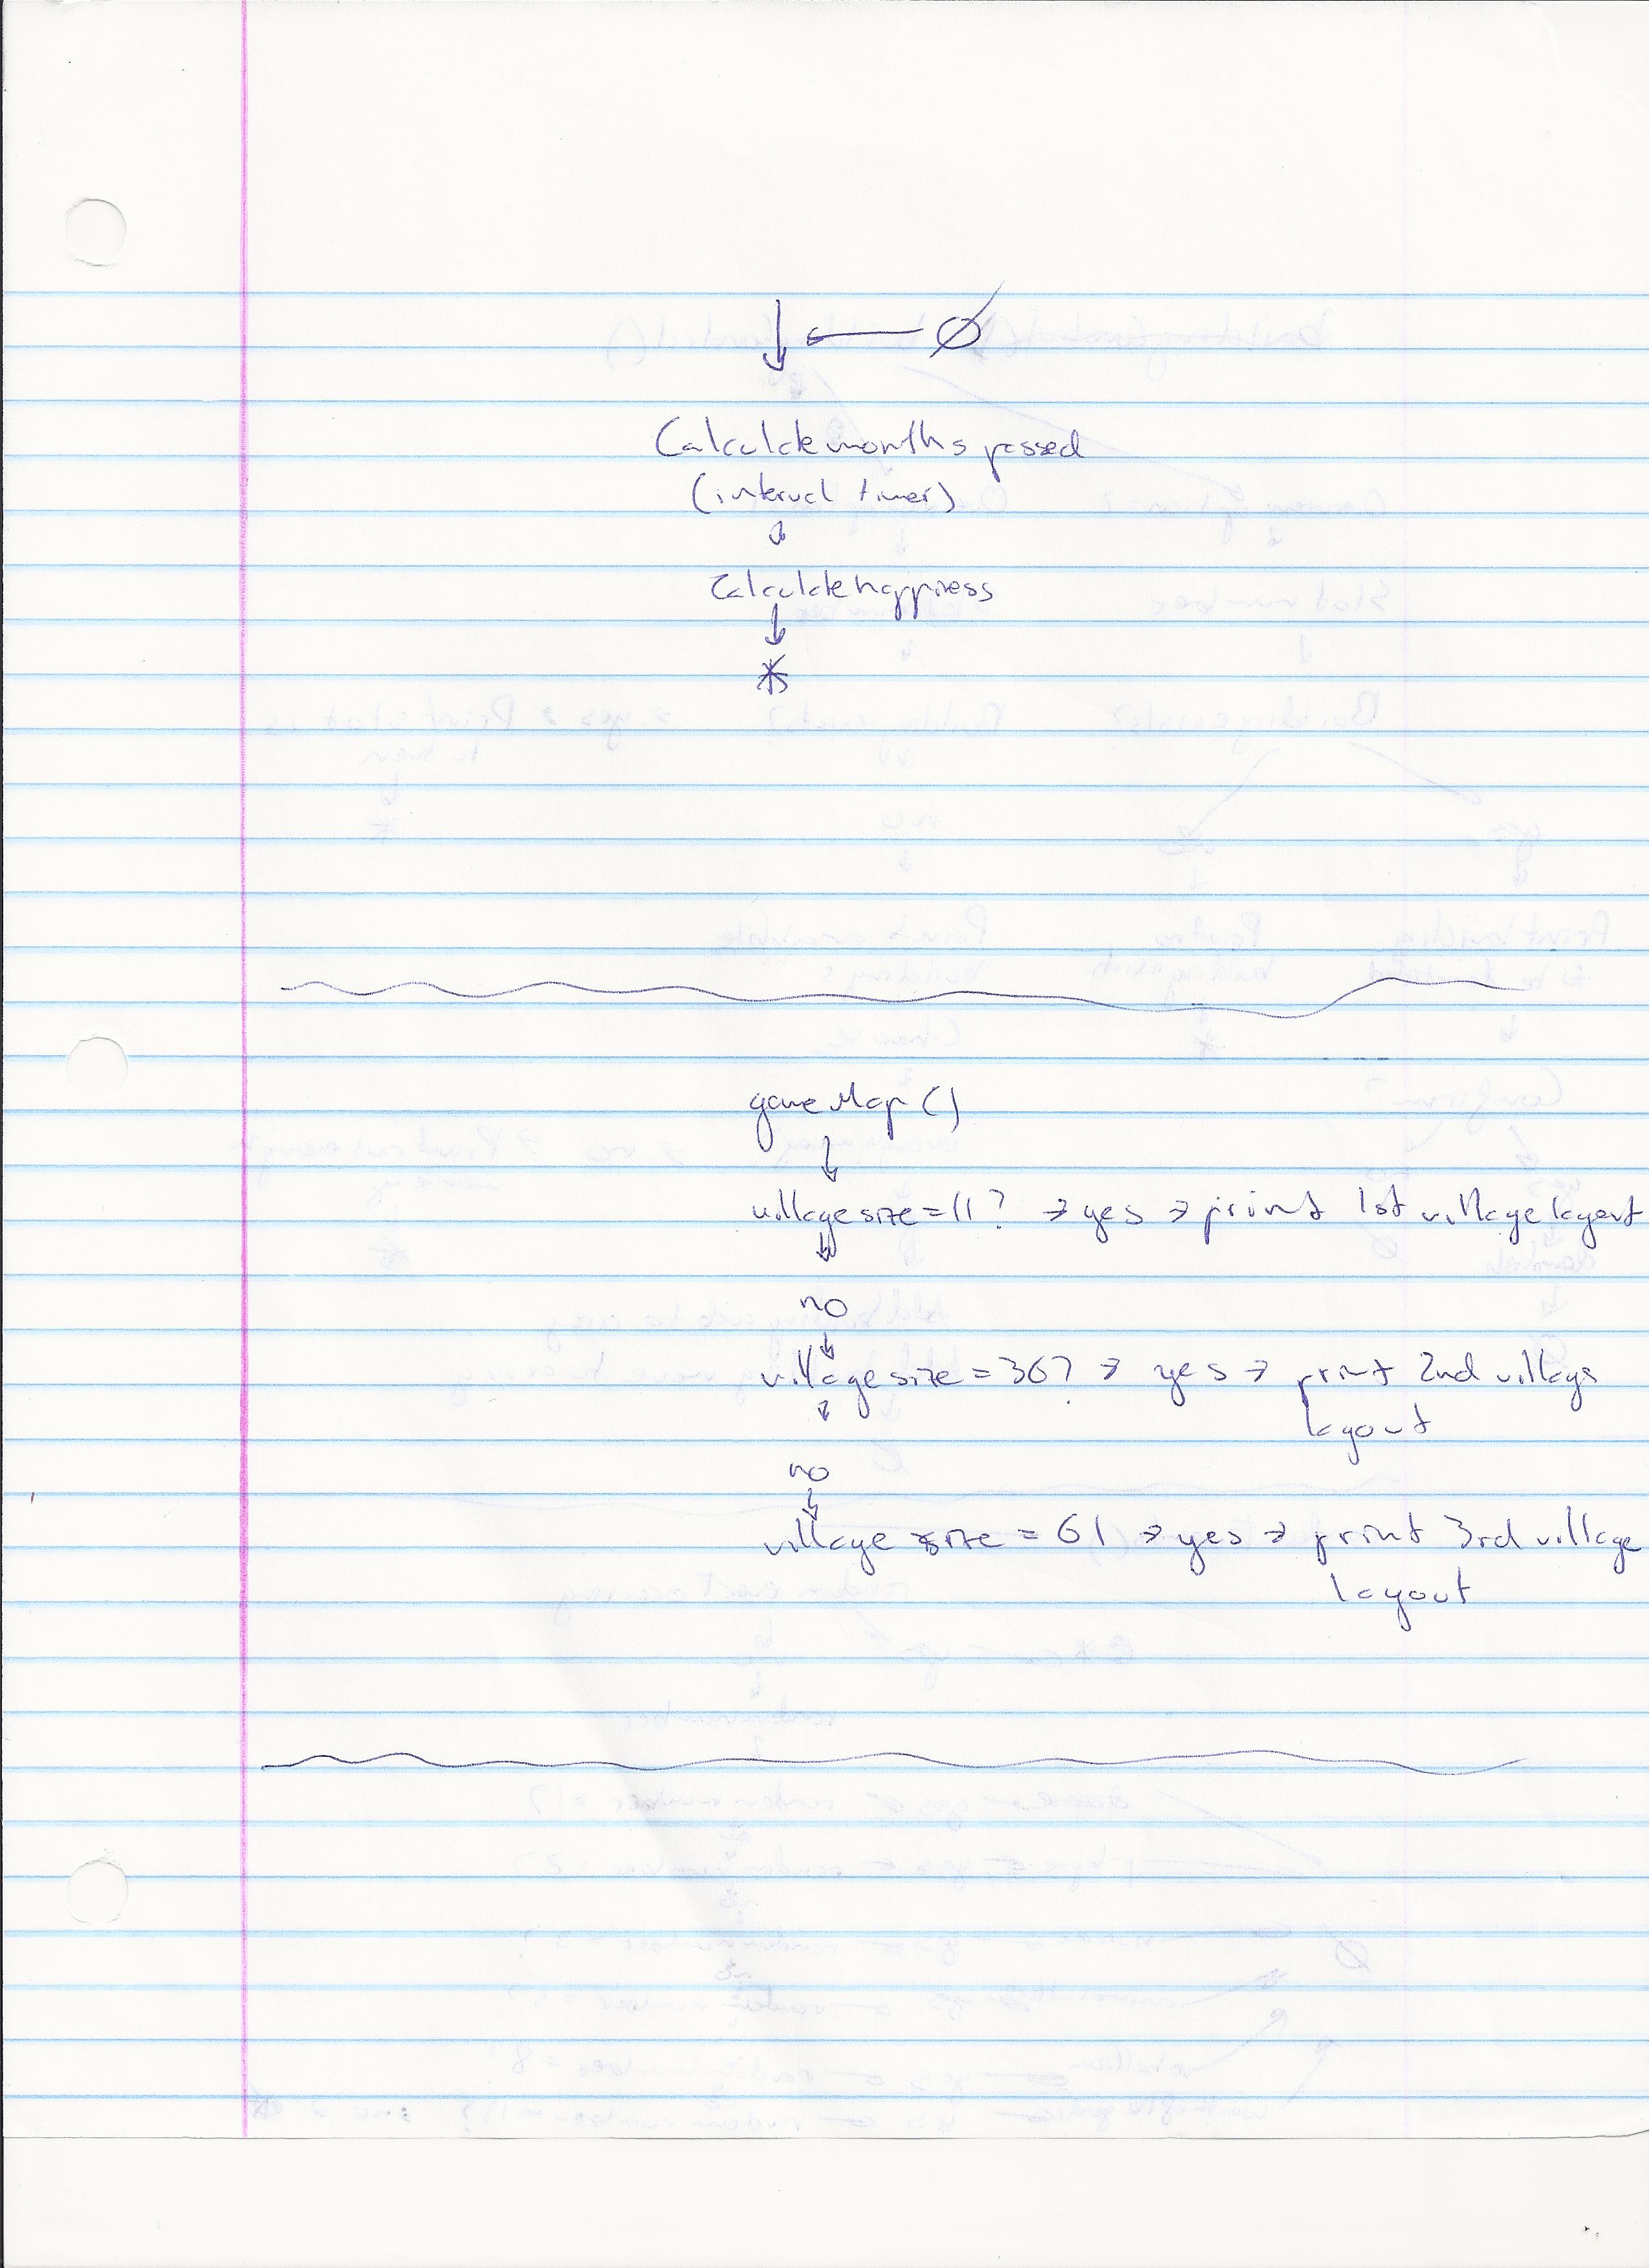 ↓ ← Ø
Calculate months passed
(interval timer)
↓
Calculate happiness
↓
*
gameMap()
↓
village size = 11? → yes → print 1st village layout
↓
no
↓
village size = 36? → yes → print 2nd village
layout
↓
no
↓
village size = 61 → yes → print 3rd village
layout